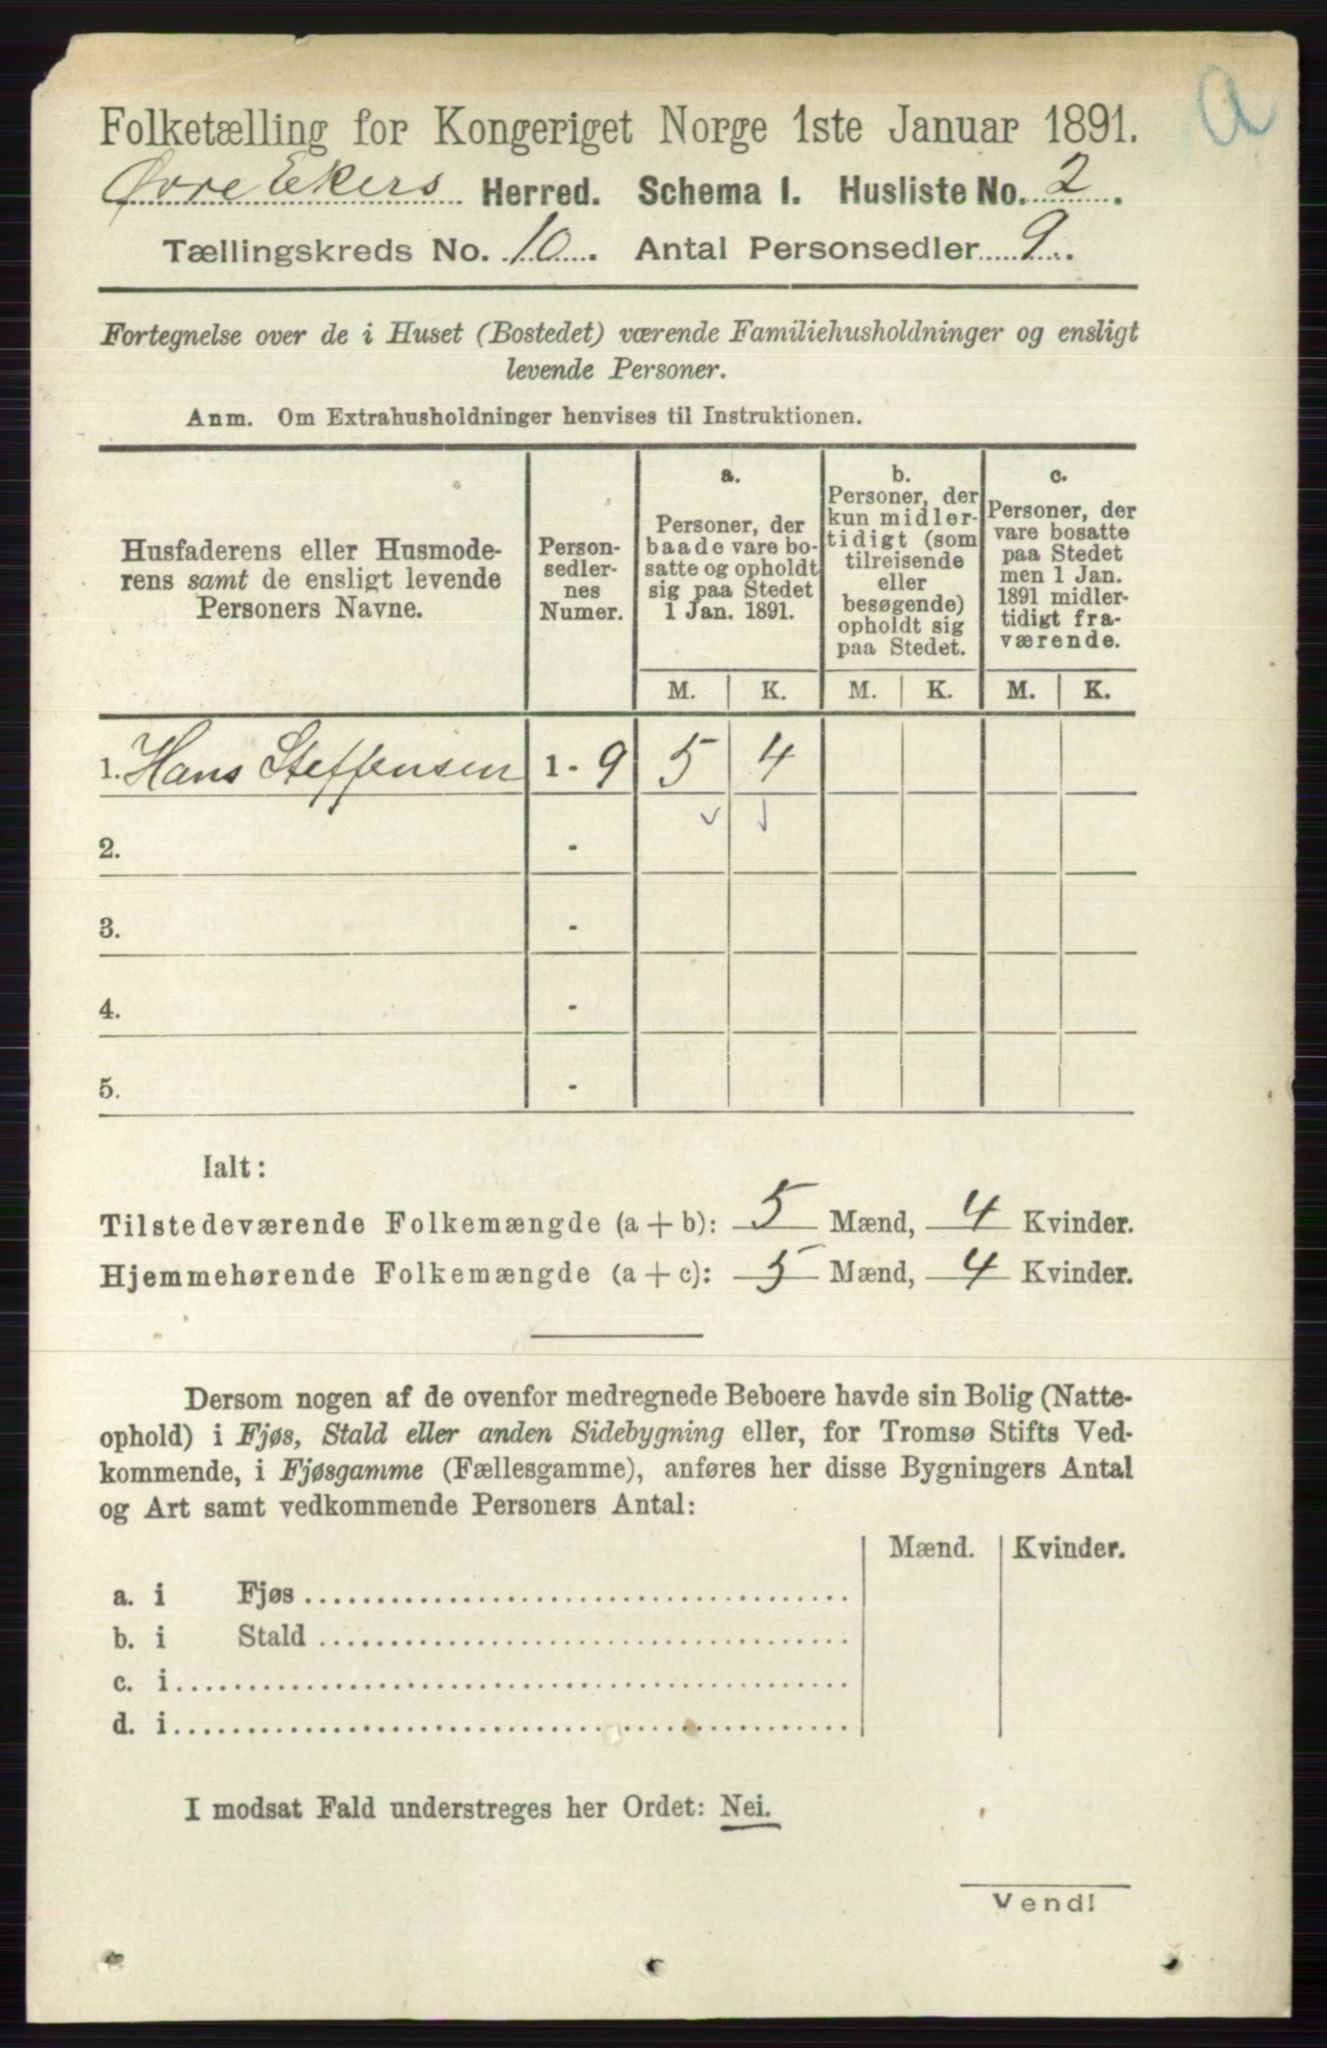 a
Folketælling for Kongeriget Norge 1ste Januar 1891.
Øvre Ekers Herred. Schema I. Husliste No. 2.
Tællingskreds No. 10. Antal Personsedler 9.
Fortegnelse over de i Huset (Bostedet) værende Familiehusholdninger og ensligt
levende Personer.
Anm. Om Extrahusholdninger henvises til Instruktionen.
Husfaderens eller Husmode-
rens samt de ensligt levende
Personers Navne.
Person-
sedler-
nes
Numer.
a.
Personer, der
baade vare bo-
satte og opholdt
sig paa Stedet
1 Jan. 1891.
b.
Personer, der
kun midler-
tidigt (som
tilreisende
eller
besøgende)
opholdt sig
paa Stedet.
c.
Personer, der
vare bosatte
paa Stedet
men 1 Jan.
1891 midler-
tidigt fra-
værende.
M. K. M. K. M. K.
1. Hans Steffensen 1 - 9 5 4
2. -
3. -
4. -
5. -
Ialt:
Tilstedeværende Folkemængde (a + b): 5 Mænd, 4 Kvinder.
Hjemmehørende Folkemængde (a + c): 5 Mænd, 4 Kvinder.
Dersom nogen af de ovenfor medregnede Beboere havde sin Bolig (Natte-
ophold) i Fjøs, Stald eller anden Sidebygning eller, for Tromsø Stifts Ved-
kommende, i Fjøsgamme (Fællesgamme), anføres her disse Bygningers Antal
og Art samt vedkommende Personers Antal:
Mænd. Kvinder.
a. i Fjøs
b. i Stald
c. i
d. i
I modsat Fald understreges her Ordet: Nei.
Vend!